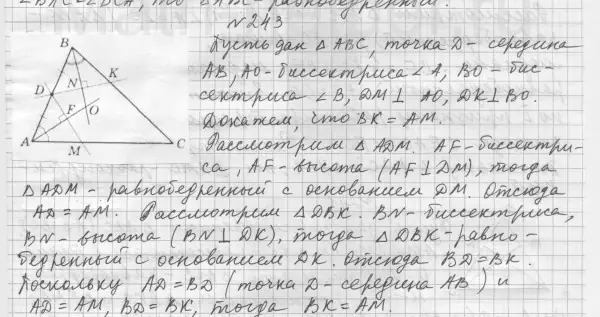 ∠BAC = ∠BCA, то △ABC - равнобедренный.
N 243
Пусть дан △ABC, точка D - середина
AB, AO - биссектриса ∠A, BO - бис-
сектриса ∠B, DM ⊥ AO, DK ⊥ BO.
Докажем, что BK = AM.
Рассмотрим △ADM. AF - биссектри-
са, AF - высота (AF ⊥ DM), тогда
△ADM - равнобедренный с основанием DM. Отсюда
AD = AM. Рассмотрим △DBK. BN - биссектриса,
BN - высота (BN ⊥ DK), тогда △DBK - равно-
бедренный с основанием DK. Отсюда BD = BK.
Поскольку AD = BD (точка D - середина AB) и
AD = AM, BD = BK, тогда BK = AM.
B
N
K
D
F
O
A
M
C